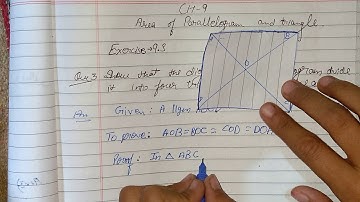 CH-9
Area of Parallelogram and triangle
Exercise 9.3
Show that the di
divide
it into four th
Given: A
B
O
To prove: AOB = BOC = COD = DOA
Proof: In △ ABC